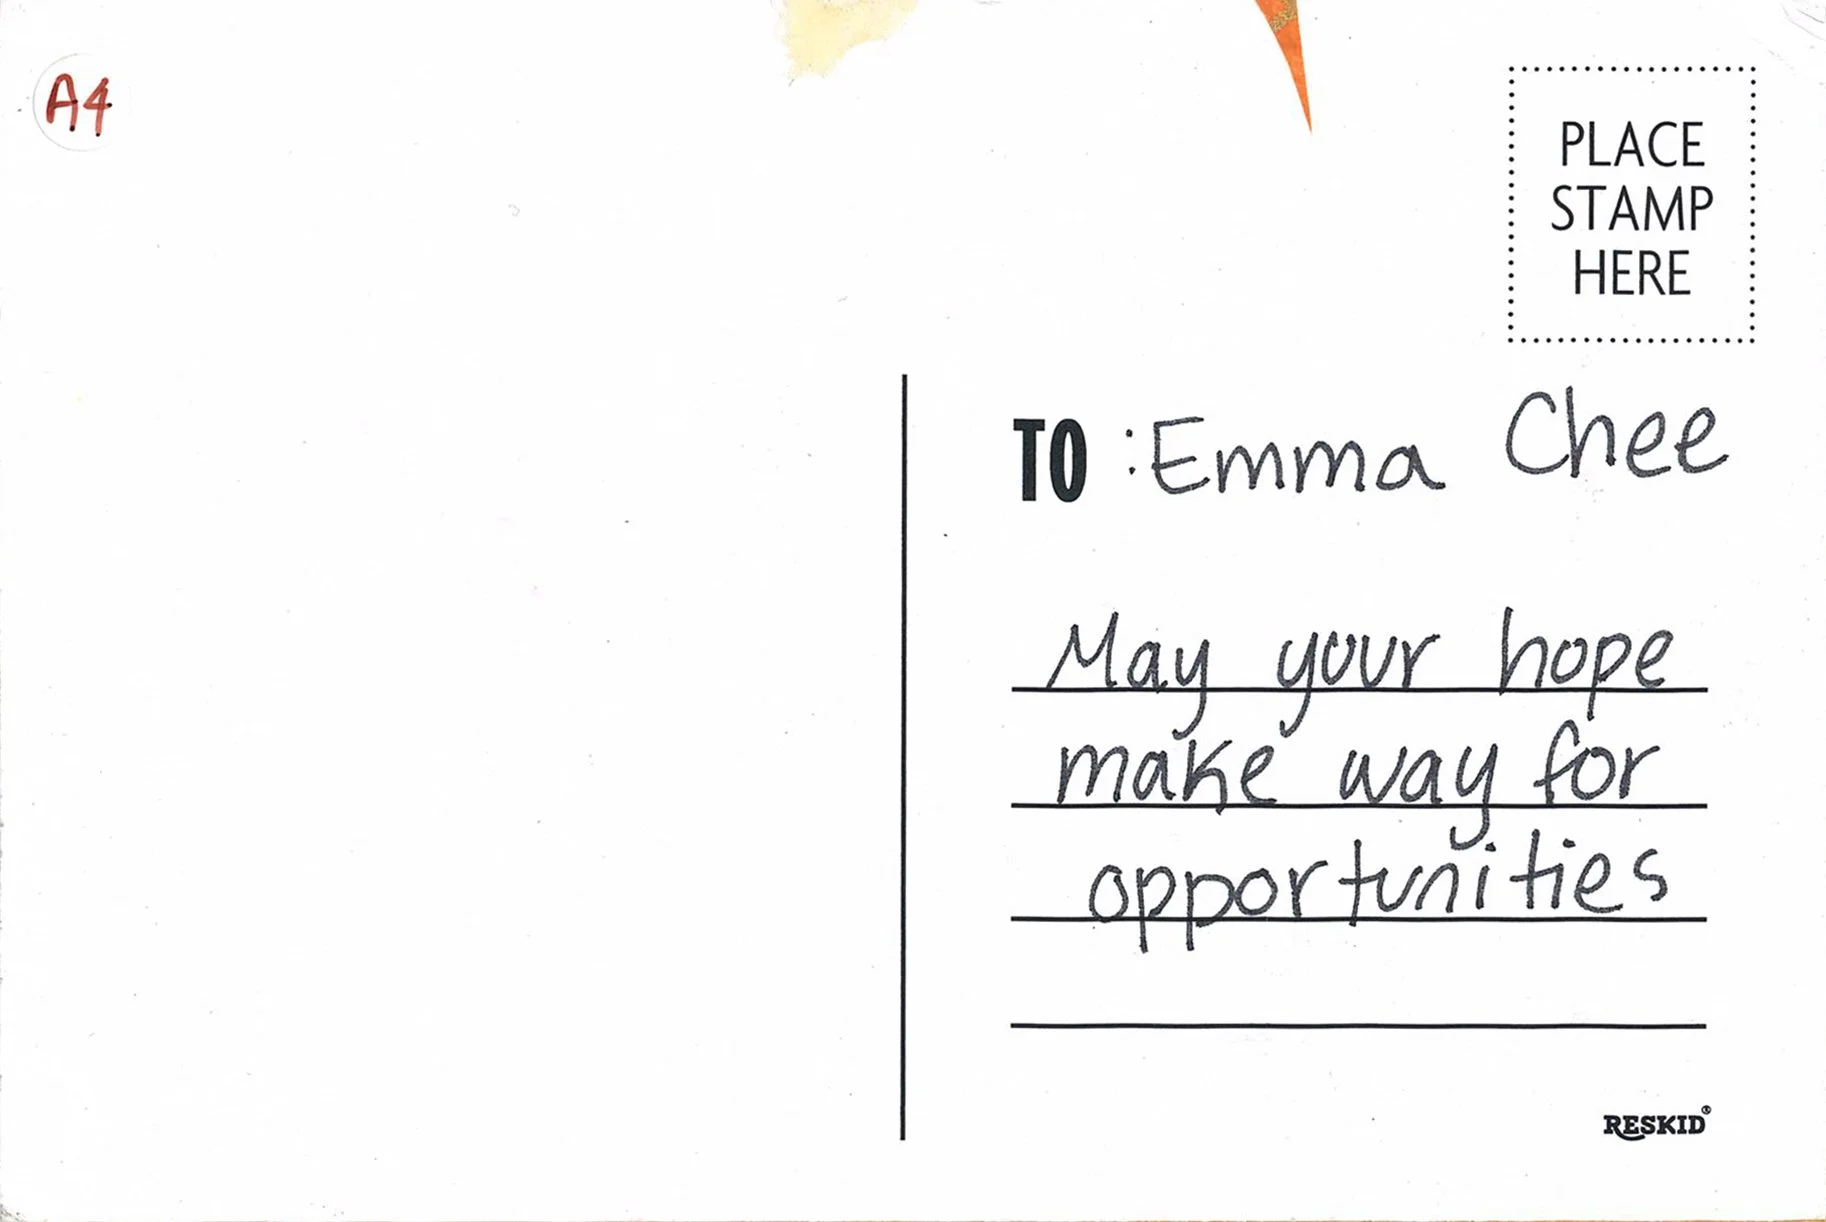 A4
PLACE
STAMP
HERE
TO :Emma Chee
May your hope
make way for
opportunities
RESKID®